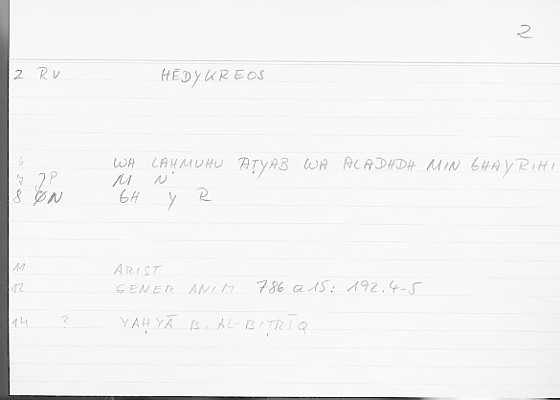 2
2 RV HĒDYKREOS
6 WA LAHMUHU AṬYAB WA ALADHDH MIN GHAYRIHI
7 JP M N
8 ØN GH Y R
11 ARIST
12 GENER ANIM 786 a 15: 192.4-5
14 ? YAḤYĀ B. AL-BIṬRĪQ